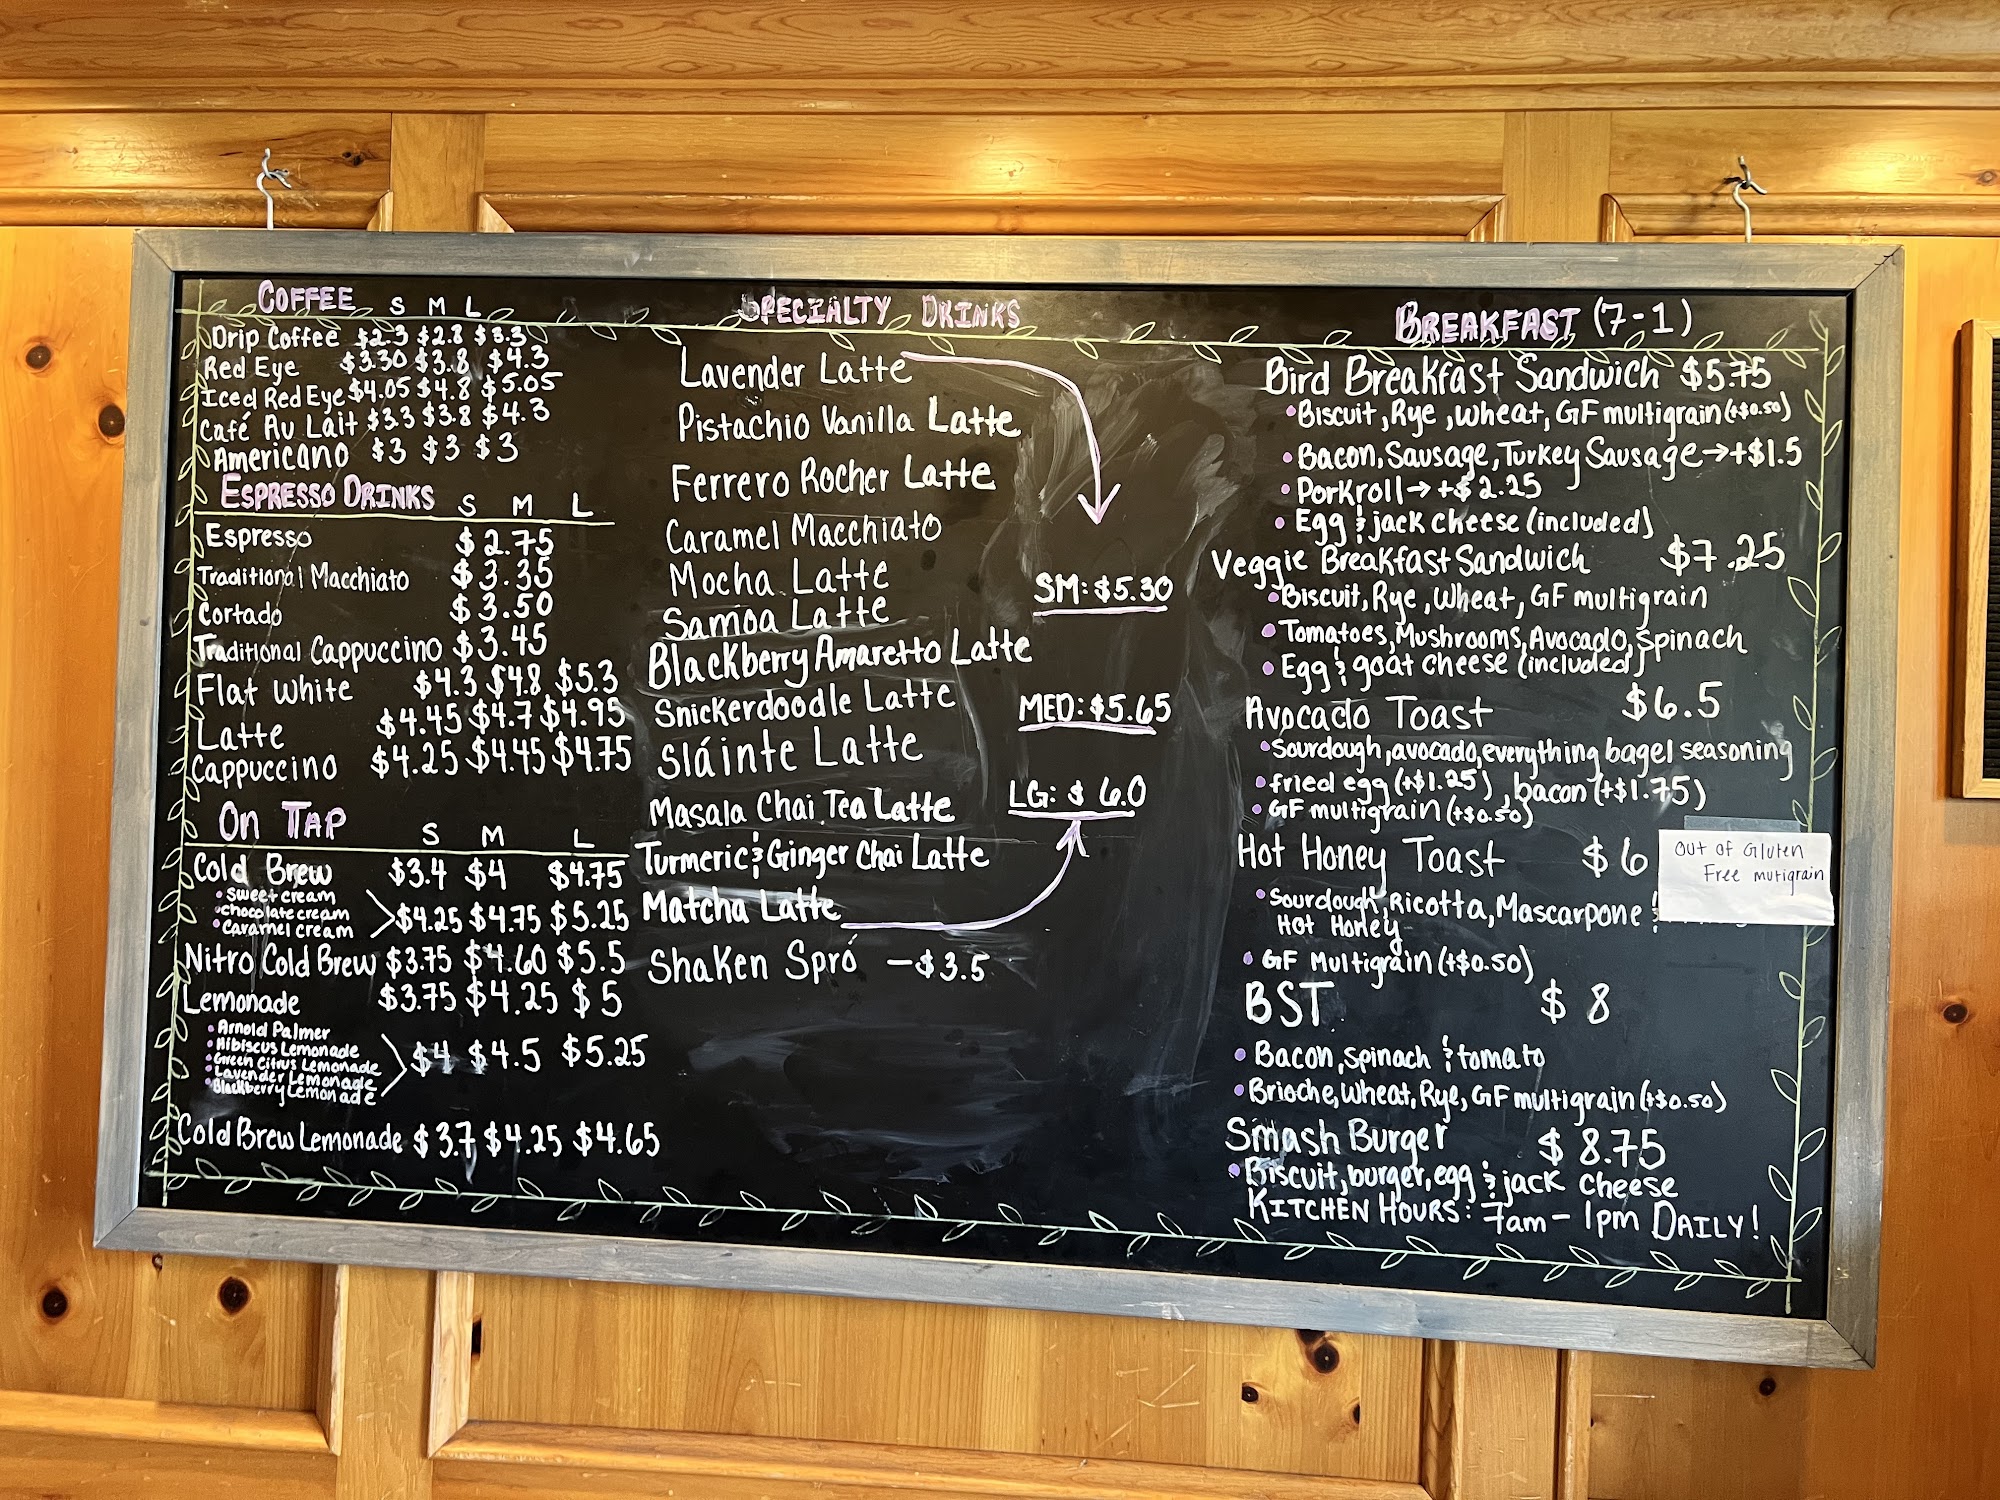 COFFEE S M L
Drip Coffee $2.3 $2.8 $3.3
Red Eye $3.30 $3.8 $4.3
Iced Red Eye $4.05 $4.8 $5.05
Café Au Lait $3.3 $3.8 $4.3
Americano $3 $3 $3
ESPRESSO DRINKS S M L
Espresso $2.75
Traditional Macchiato $3.35
Cortado $3.50
Traditional Cappuccino $3.45
Flat White $4.3 $4.8 $5.3
Latte $4.45 $4.7 $4.95
Cappuccino $4.25 $4.45 $4.75
On TAP S M L
Cold Brew $3.4 $4 $4.75
• Sweet cream
• Chocolate cream $4.25 $4.75 $5.25
• Caramel cream
Nitro Cold Brew $3.75 $4.60 $5.5
Lemonade $3.75 $4.25 $5
• Arnold Palmer
• Hibiscus Lemonade
• Green Citrus Lemonade $4 $4.5 $5.25
• Lavender Lemonade
• Blackberry Lemonade
Cold Brew Lemonade $3.7 $4.25 $4.65
SPECIALTY DRINKS
Lavender Latte
Pistachio Vanilla Latte
Ferrero Rocher Latte
Caramel Macchiato
Mocha Latte
Samoa Latte
Blackberry Amaretto Latte
Snickerdoodle Latte
Sláinte Latte
Masala Chai Tea Latte
Turmeric & Ginger Chai Latte
Matcha Latte
Shaken Spró - $3.5
SM: $5.30
MED: $5.65
LG: $6.0
BREAKFAST (7-1)
Bird Breakfast Sandwich $5.75
• Biscuit, Rye, Wheat, GF multigrain (+$0.50)
• Bacon, Sausage, Turkey Sausage → +$1.5
• Porkroll → +$2.25
• Egg & jack cheese (included)
Veggie Breakfast Sandwich $7.25
• Biscuit, Rye, Wheat, GF multigrain
• Tomatoes, Mushrooms, Avocado, Spinach
• Egg & goat cheese (included)
Avocado Toast $6.5
• Sourdough, avocado, everything bagel seasoning
• fried egg (+$1.25), bacon (+$1.75)
• GF multigrain (+$0.50)
Hot Honey Toast $6
• Sourdough, Ricotta, Mascarpone &
Hot Honey
• GF Multigrain (+$0.50)
Out of Gluten
Free mutigrain
BST $8
• Bacon, spinach & tomato
• Brioche, Wheat, Rye, GF multigrain (+$0.50)
Smash Burger $8.75
• Biscuit, burger, egg & jack cheese
KITCHEN HOURS: 7am - 1pm DAILY!